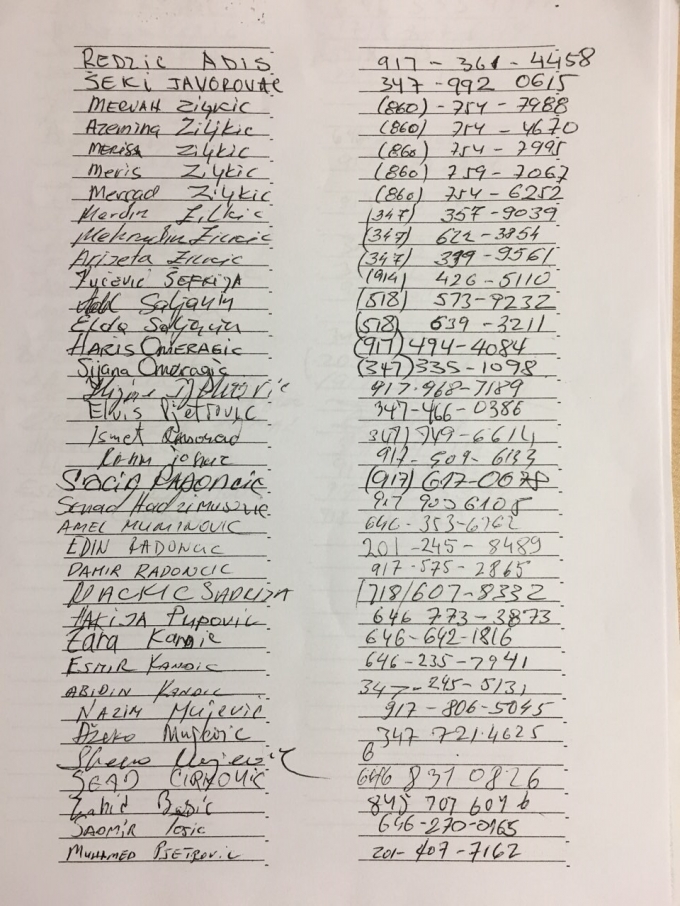 REDZIC ADIS 917-361-4458
ŠEKI JAVOROVAC 347-992 0615
MERVAH Ziljkic (860)-754-7988
Azemina Ziljkic (860) 754-4670
MERISA Ziljkic (860) 754-7995
Meris Ziljkic (860) 759-7067
Mersad Ziljkic (860) 754-6252
(347) 357-9039
(347) 622-3854
Arizeta (347) 399-9561
ŠEFKIJA (914) 426-5110
Saljanin (518) 573-9232
Elda Saljanin (518) 639-3211
HARIS OMERAGIC (917) 494-4084
Sijana Omeragic (347) 335-1098
917-968-7189
Elvis 347-466-0386
Ismet
917-909-6133
RADONCIC (917) 617-0678
Senad Hadzimusovic 917 900 6105
AMEL MUMINOVIC 646-353-6762
EDIN RADONCIC 201-245-8489
DAMIR RADONCIC 917-575-2865
SADRIJA (718) 607-8332
HAKIJA Pupovic 646 773-3873
Zara Kandic 646-642-1816
ESMIR KANDIC 646-235-7941
ABIDIN KANDIC 347-245-5131
NAZIM Mujevic 917-806-5045
Džeko Mujkovic 347 721-4625
6
SEAD 646 831 0826
Zahid Basic 845 707 6076
SADMIR 646-270-0165
MUHAMED PJETROVIC 201-407-7162